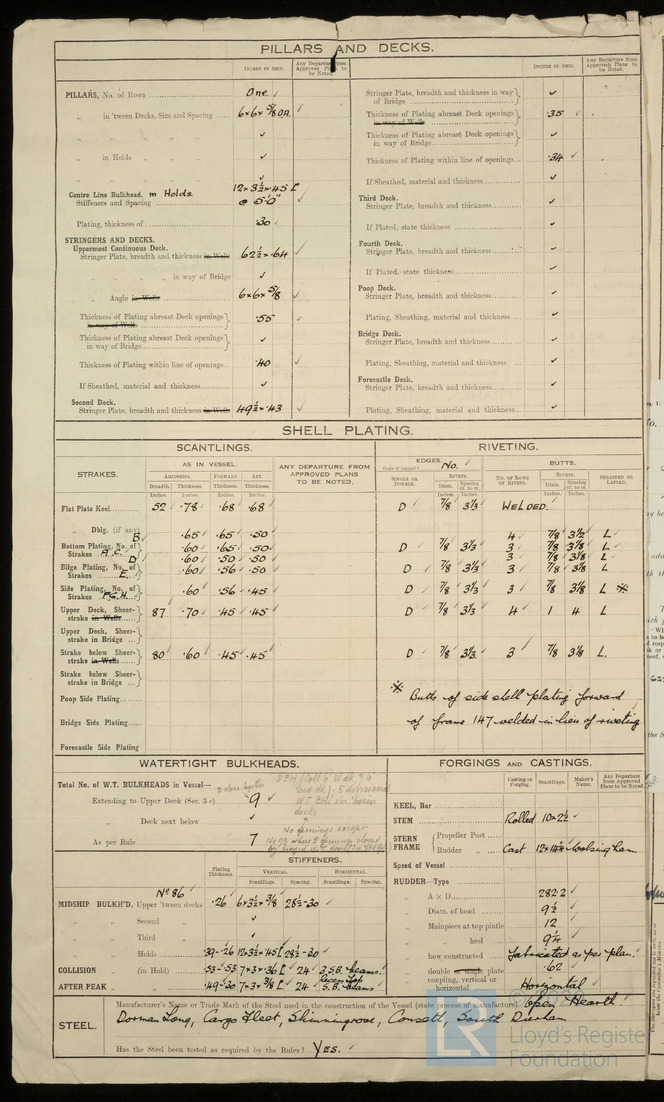 PILLARS AND DECKS.
INCHES IN SHIP.
Any Departure from Approved Plans to be Noted.
PILLARS, No. of Rows One
„ in 'tween Decks, Size and Spacing 6×6×5/8 OA.
„ in Holds „ „ ✓
Centre Line Bulkhead. in Holds
Stiffeners and Spacing 12×3½×.45 [ @ 5'.0"
Plating, thickness of .30
STRINGERS AND DECKS.
Uppermost Continuous Deck.
Stringer Plate, breadth and thickness in Wells 62½ × .64
„ „ „ in way of Bridge ✓
„ Angle in Wells 6×6×5/8
Thickness of Plating abreast Deck openings in way of Wells .55
Thickness of Plating abreast Deck openings in way of Bridge ✓
Thickness of Plating within line of openings .40
If Sheathed, material and thickness ✓
Second Deck.
Stringer Plate, breadth and thickness in Wells 49½ × .43
INCHES IN SHIP.
Any Departure from Approved Plans to be Noted.
Stringer Plate, breadth and thickness in way of Bridge ✓
Thickness of Plating abreast Deck openings in way of Wells .35
Thickness of Plating abreast Deck openings in way of Bridge ✓
Thickness of Plating within line of openings .34
If Sheathed, material and thickness ✓
Third Deck.
Stringer Plate, breadth and thickness ✓
If Plated, state thickness ✓
Fourth Deck.
Stringer Plate, breadth and thickness ✓
If Plated, state thickness ✓
Poop Deck.
Stringer Plate, breadth and thickness ✓
Plating, Sheathing, material and thickness ✓
Bridge Deck.
Stringer Plate, breadth and thickness ✓
Plating, Sheathing, material and thickness ✓
Forecastle Deck.
Stringer Plate, breadth and thickness ✓
Plating, Sheathing, material and thickness ✓
SHELL PLATING.
SCANTLINGS.
RIVETING.
STRAKES.
AS IN VESSEL.
AMIDSHIPS. FORWARD. AFT.
Breadth. Thickness. Thickness. Thickness.
Inches. Inches. Inches. Inches.
ANY DEPARTURE FROM APPROVED PLANS TO BE NOTED.
EDGES. No.
SINGLE OR DOUBLE. RIVETS. Diam. Spacing cr. to cr.
BUTTS.
NO. OF ROWS OF RIVETS. RIVETS. Diam. Spacing cr. to cr. STRAPPED OR LAPPED.
Flat Plate Keel 52 .78 .68 .68 D 7/8 3⅓ WELDED.
„ Dblg. (if any)
B .65 .65 .50 4 7/8 3½ L
Bottom Plating, No. of Strakes A.C. .60 .65 .50 D 7/8 3⅓ 3 7/8 3⅛ L
D .60 .50 .50 3 7/8 3⅛ L
Bilge Plating, No. of Strakes E. .60 .56 .50 D 7/8 3⅓ 3 7/8 3⅛ L
Side Plating, No. of Strakes F.G.H. .60 .56 .45 D 7/8 3⅓ 3 7/8 3⅛ L ※
Upper Deck, Sheerstrake in Wells 87 .70 .45 .45 D 7/8 3⅓ 4 1 4 L
Upper Deck, Sheerstrake in Bridge
Strake below Sheerstrake in Wells 80 .60 .45 .45 D 7/8 3⅓ 3 7/8 3⅛ L.
Strake below Sheerstrake in Bridge
Poop Side Plating
Bridge Side Plating
Forecastle Side Plating
※ Butts of side shell plating forward
of frame 147 welded in lieu of riveting
WATERTIGHT BULKHEADS.
Total No. of W.T. BULKHEADS in Vessel—
Extending to Upper Deck (Sec. 3 c) 9
„ Deck next below ✓
As per Rule 7
STIFFENERS.
Plating Thickness. VERTICAL. HORIZONTAL.
Scantlings. Spacing. Scantlings. Spacing.
No 86
MIDSHIP BULKH'D, Upper 'tween decks .26 6×3½×3/8 28½-30
„ Second „ ✓
„ Third „ ✓
„ Holds .39-.26 12×3½×.45 [ 28½-30
COLLISION (in Hold) .53-.53 7×3×.36 [ 24 3.S.B. beams.
AFTER PEAK .49-.30 7×3×3/8 [ 24
FORGINGS AND CASTINGS.
Casting or Forging. Scantlings. Maker's Name. Any Departure from Approved Plans to be Noted.
KEEL, Bar
STEM Rolled 10×2½
STERN FRAME Propeller Post
Rudder „ Cast Wolsingham
Speed of Vessel
RUDDER—Type
„ A × D 282.2
„ Diam. of head 9½
„ Mainpiece at top pintle 12
„ „ heel 9¼
„ how constructed Fabricated as per plan.
„ double or single plate .62
„ coupling, vertical or horizontal Horizontal
STEEL.
Manufacturer's Name or Trade Mark of the Steel used in the construction of the Vessel (state process of manufacture) Open Hearth
Dorman Long, Cargo Fleet, Skinningrove, Consett, South Durham
Has the Steel been tested as required by the Rules? YES.
LR
Lloyd's Register
Foundation